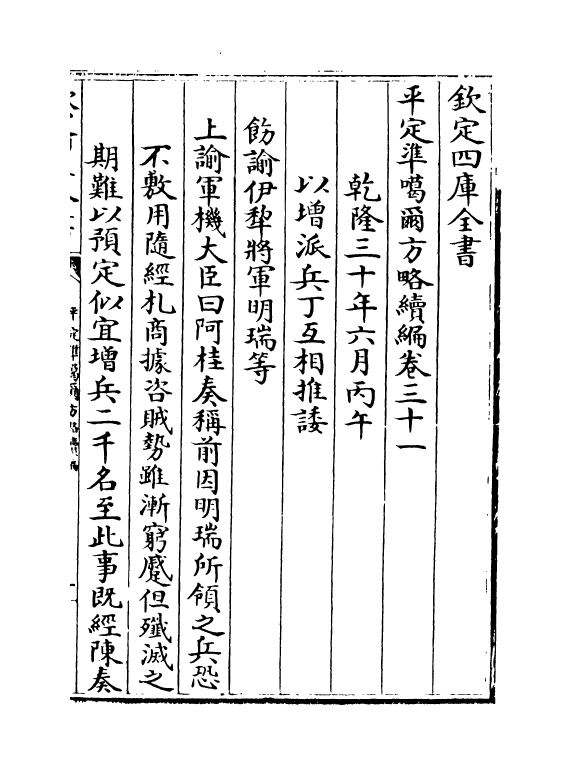 欽定四庫全書
平定準噶爾方略續編卷三十一
乾隆三十年六月丙午
以增派兵丁互相推諉
飭諭伊犂將軍明瑞等
上諭軍機大臣曰阿桂奏稱前因明瑞所領之兵恐
不敷用隨經札商據咨賊勢雖漸窮蹙但殲滅之
期難以預定似宜增兵二千名至此事既經陳奏
平定準噶爾方略續編